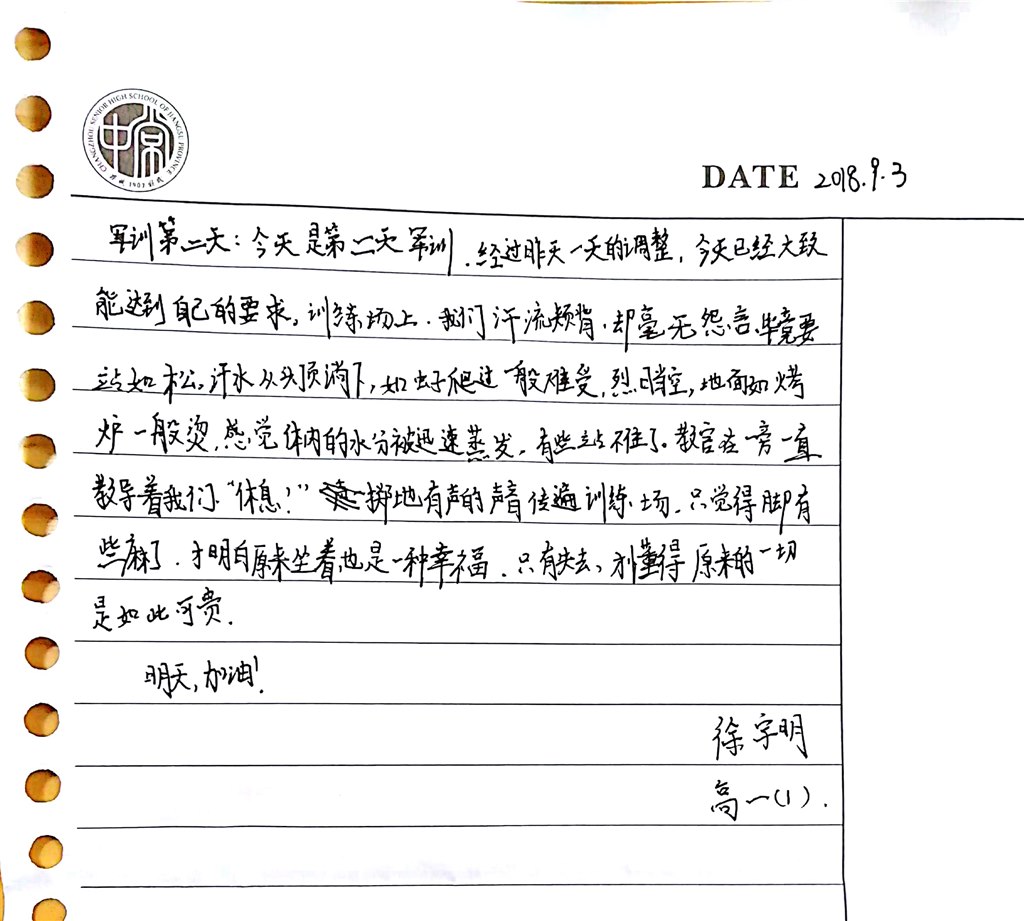 CHANGZHOU SENIOR HIGH SCHOOL OF JIANGSU PROVINCE
1907
DATE 2018.9.3
军训第二天：今天是第二天军训，经过昨天一天的调整，今天已经大致
能达到自己的要求。训练场上，我们汗流颊背，却毫无怨言，毕竟要
站如松。汗水从头顶淌下，如虫子爬过一般难受，烈日当空，地面如烤
炉一般烫，感觉体内的水分被迅速蒸发，有些站不住了。教官在一旁一直
教导着我们。“休息！”掷地有声的声音传遍训练场。只觉得脚有
些麻了，才明白原来坐着也是一种幸福。只有失去，才懂得原来的一切
是如此可贵.
明天，加油！
徐宇明
高一(1).